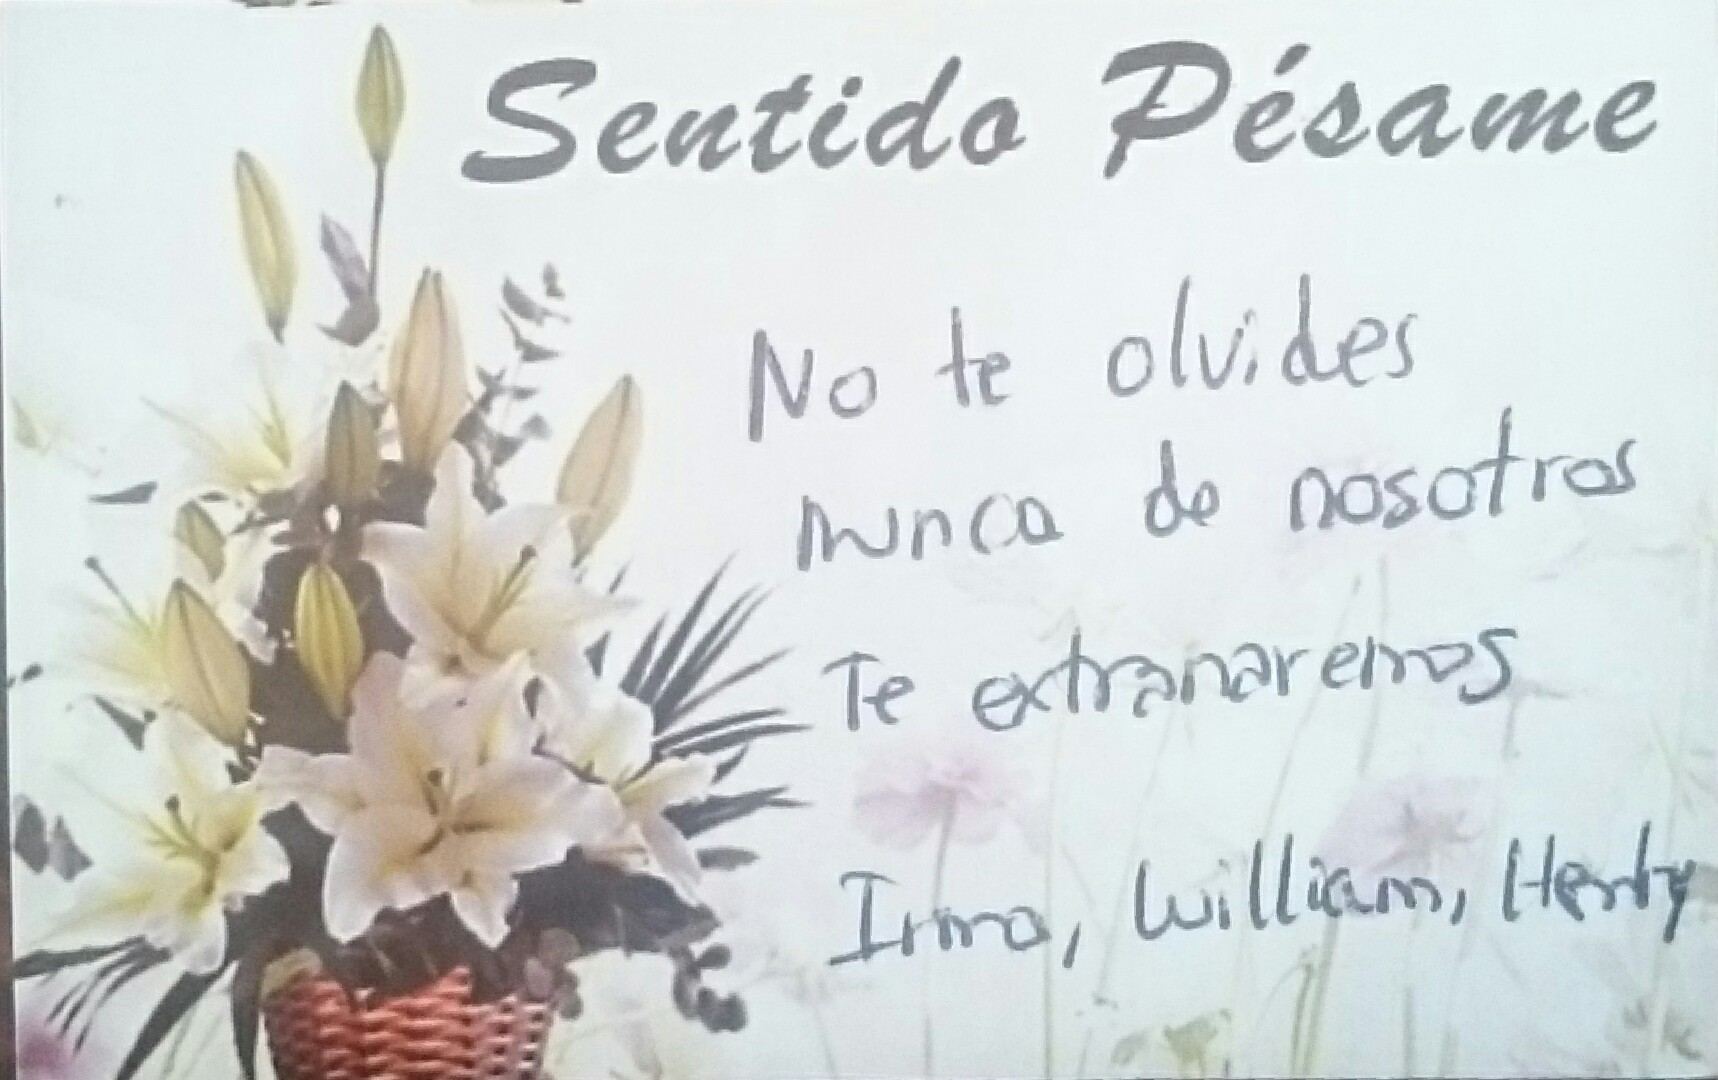 Sentido Pésame
No te olvides
nunca de nosotros
Te extranaremos
Irma, William, Henly